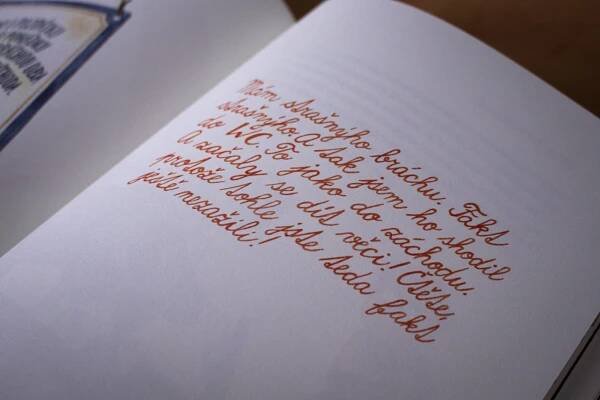 Mám strašnýho bráchu. Fakt
strašnýho. A tak jsem ho shodil
do WC. To jako do záchodu.
A začaly se dít věci! Čtěte,
protože tohle jste teda fakt
ještě nezažili!